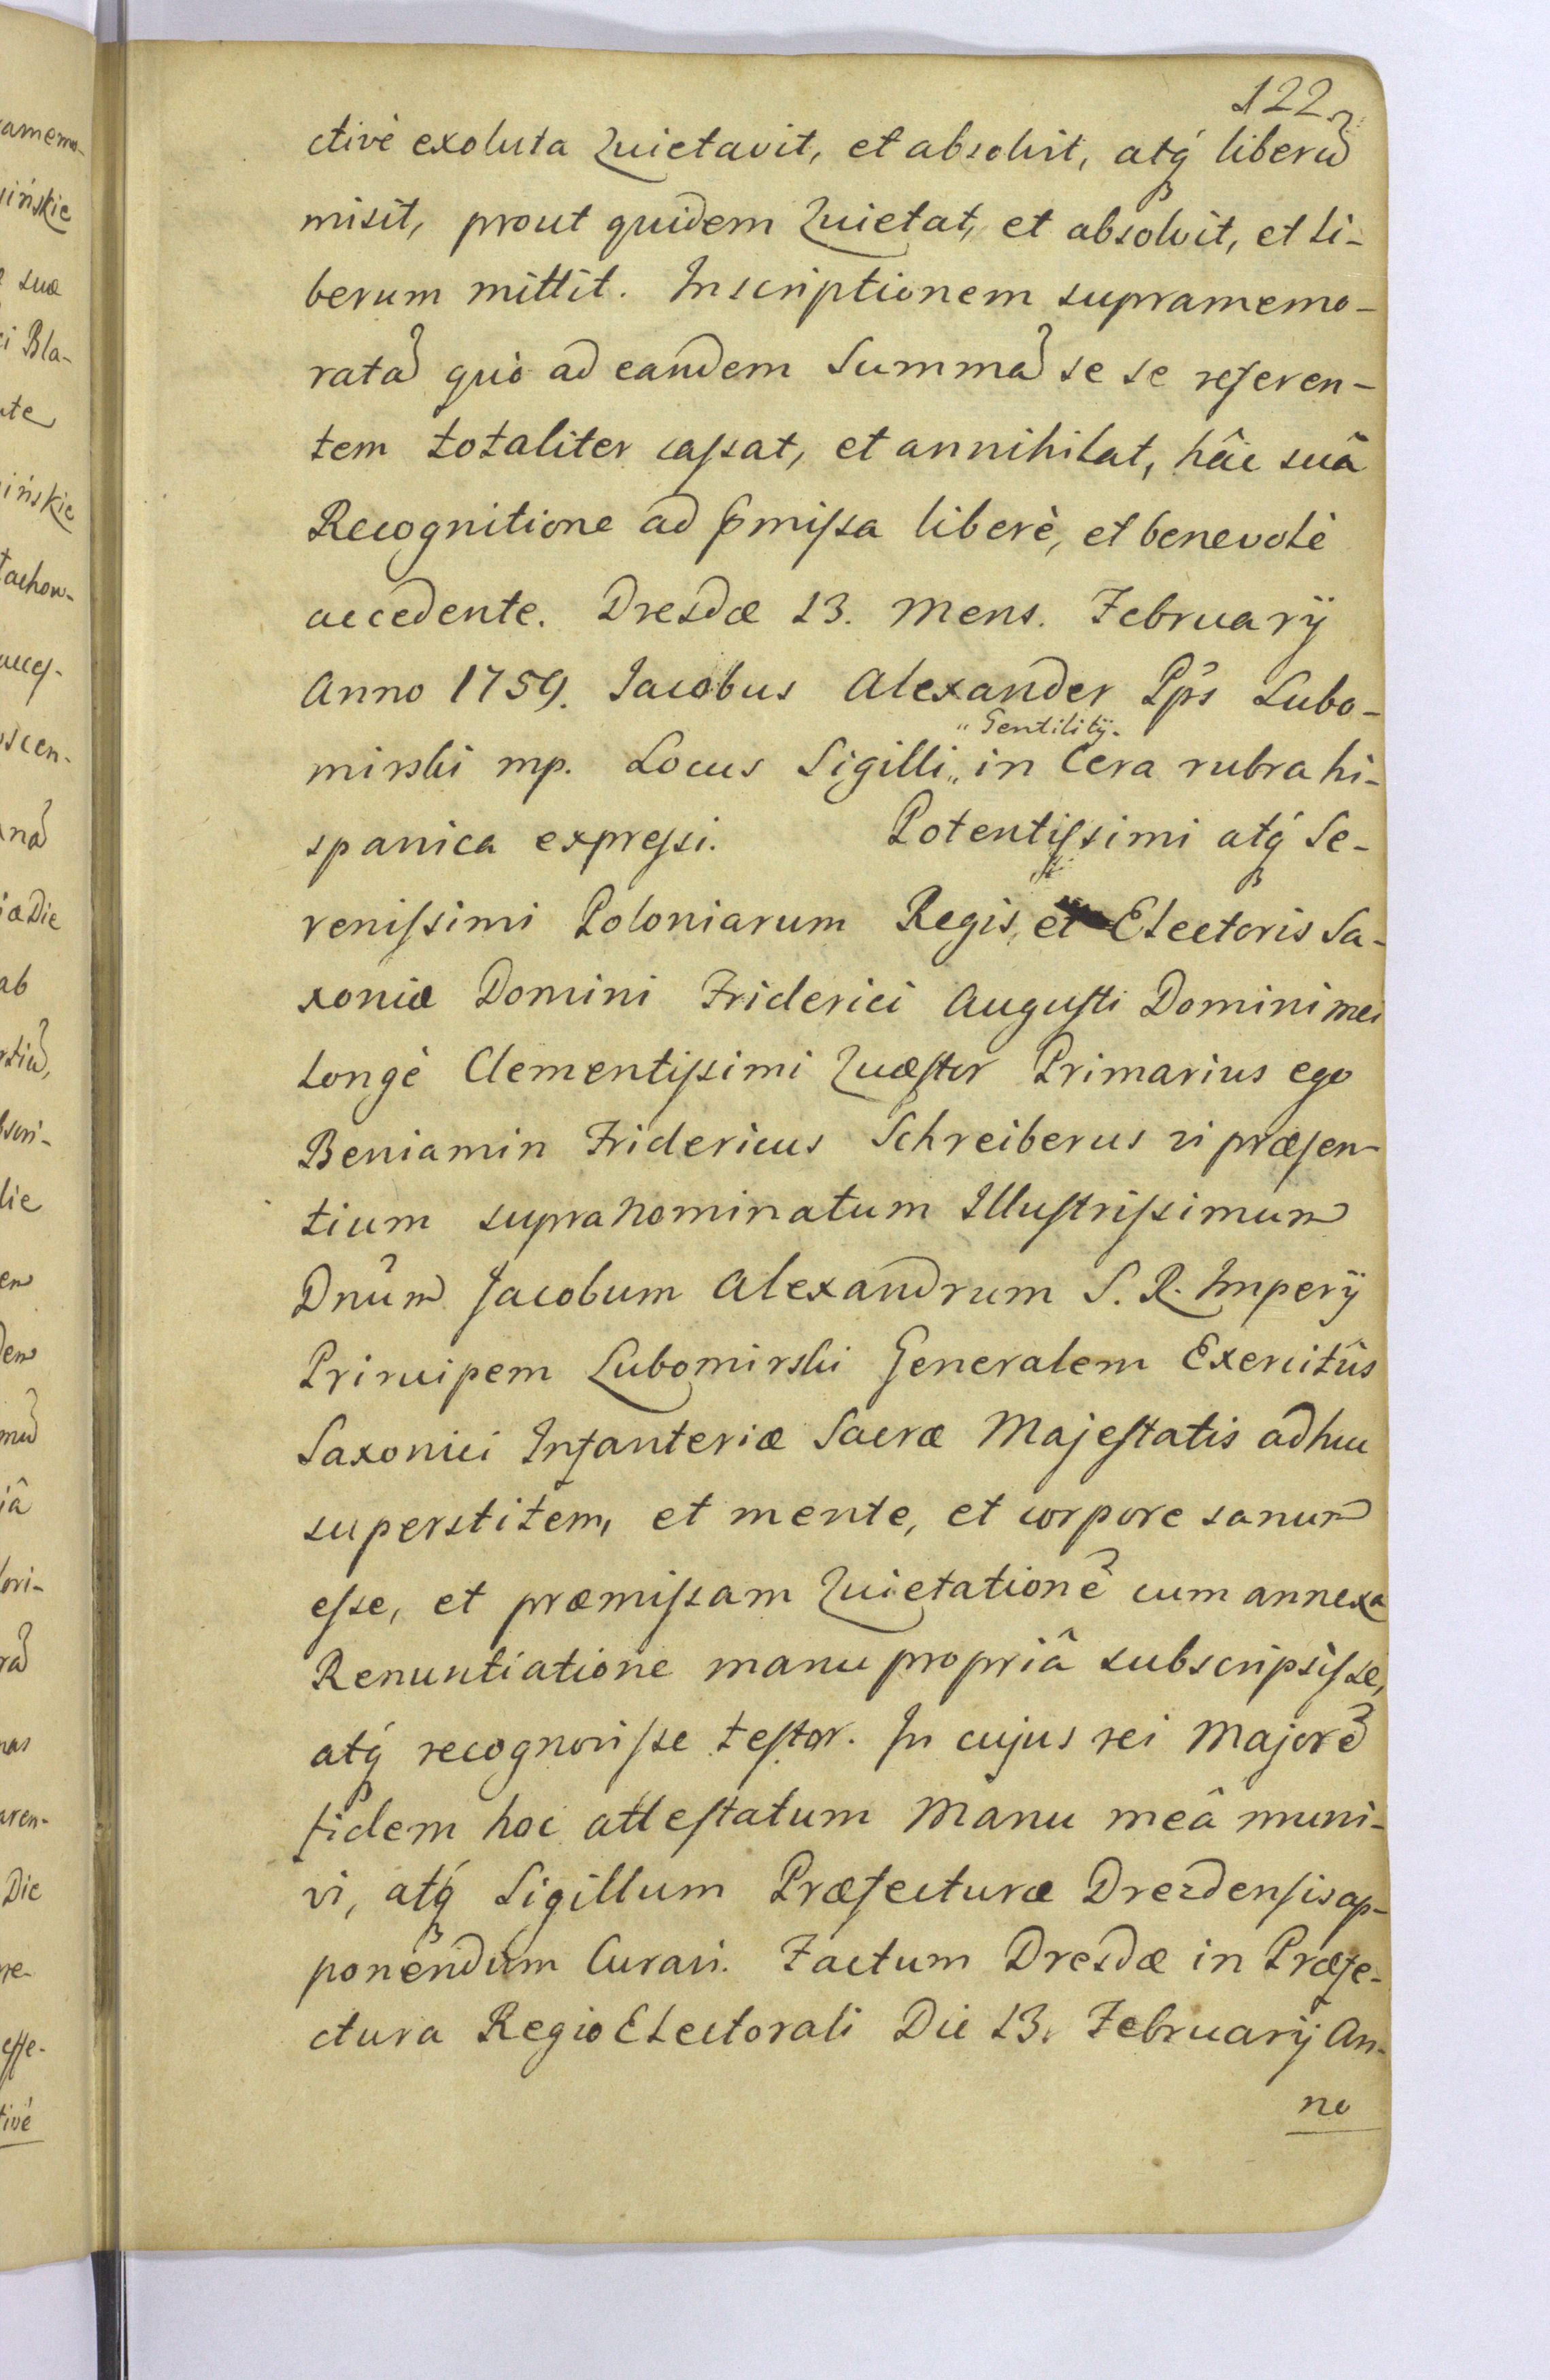 122
ctivè exoluta Quietavit, et absolvit, atq́ liberũ
misit, prout quidem Quietat, et absolvit, et li-
berum mittit. Inscriptionem supramemo-
ratã quò ad eandem Summã se se referen-
tem totaliter cassat, et annihilat, hâc suâ
Recognitione ad p̃missa liberè, et benevolè
accedente. Dresdæ 13. Mens. Februarÿ
Anno 1759. Jacobus Alexander Pp̃s Lubo-
mirski mp. Locus Sigilli „ Gentilitÿ. in Cera rubra hi-
spanica expressi. Potentissimi atq́ Se-
renissimi Poloniarum Regis, et Electoris Sa-
xoniæ Domini Friderici Augusti Domini mei
longè Clementissimi Quæstor Primarius ego
Beniamin Fridericus Schreiberus vi præsen-
tium supra Nominatum Illustrissimum
Dnũm Jacobum Alexandrum S. R. Imperÿ
Principem Lubomirski Generalem Exercitûs
Saxonici Infanteriæ Sacræ Majestatis adhuc
superstitem, et mente, et corpore sanum
esse, et præmissam Quietationẽ cum annexa
Renuntiatione manu propriâ subscripsisse,
atq́ recognovisse testor. In cujus rei Majorẽ
fidem hoc attestatum Manu meâ muni-
vi, atq́ Sigillum Præfecturæ Dresdensis ap-
ponendum Curavi. Factum Dresdæ in Præfe-
ctura Regio Electorali Die 13. Februarÿ An-
no